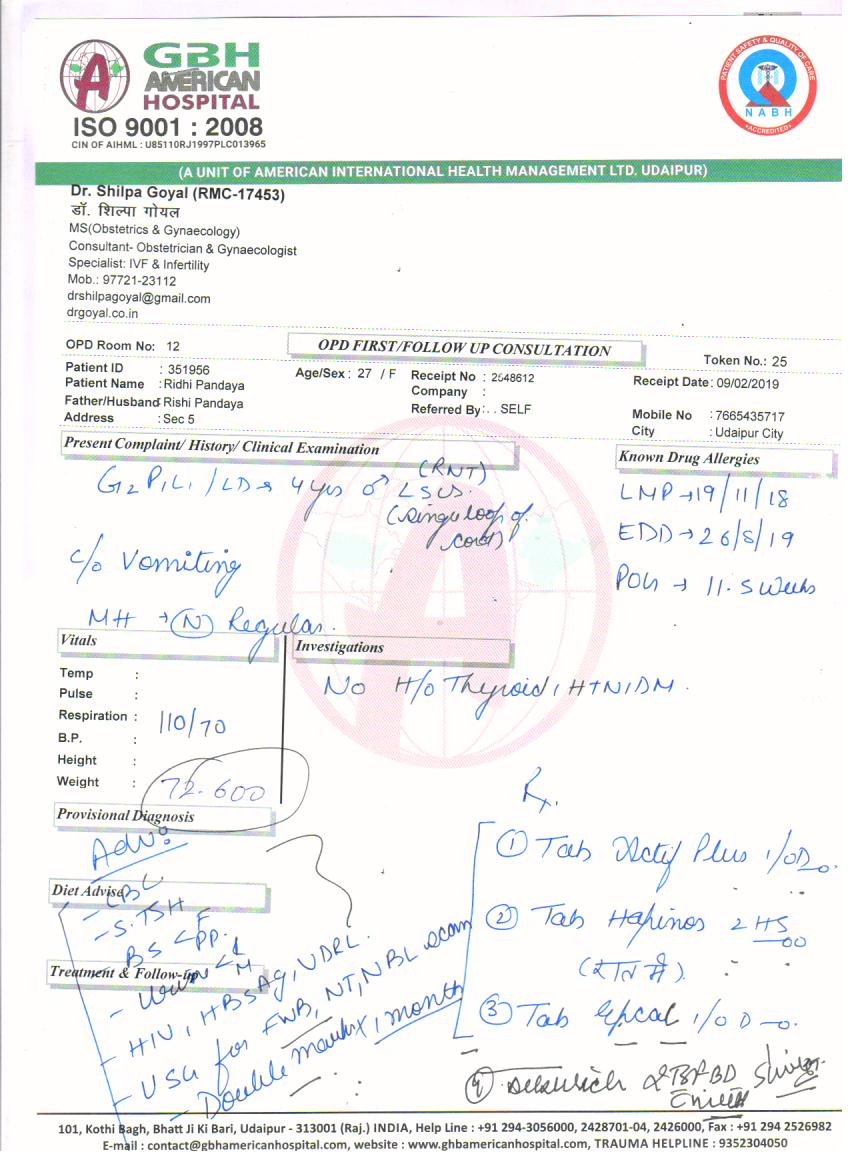 GBH
AMERICAN
HOSPITAL
ISO 9001 : 2008
CIN OF AIHML : U85110RJ1997PLC013965
PATIENT SAFETY & QUALITY OF CARE
NABH
ACCREDITED
(A UNIT OF AMERICAN INTERNATIONAL HEALTH MANAGEMENT LTD. UDAIPUR)
Dr. Shilpa Goyal (RMC-17453)
डॉ. शिल्पा गोयल
MS(Obstetrics & Gynaecology)
Consultant- Obstetrician & Gynaecologist
Specialist: IVF & Infertility
Mob.: 97721-23112
drshilpagoyal@gmail.com
drgoyal.co.in
OPD Room No: 12 OPD FIRST/FOLLOW UP CONSULTATION Token No.: 25
Patient ID : 351956 Age/Sex : 27 / F Receipt No : 2548612 Receipt Date: 09/02/2019
Patient Name : Ridhi Pandaya Company :
Father/Husband : Rishi Pandaya Referred By: . . SELF Mobile No : 7665435717
Address : Sec 5 City : Udaipur City
Present Complaint/ History/ Clinical Examination Known Drug Allergies
G2 P1L1 / LD → 4 yrs ♂ LSCS. (RNT)
loop of cord)
LMP → 19/11/18
EDD → 26/8/19
POG → 11.5 weeks
c/o Vomiting
MH → (N) Regular.
Vitals Investigations
No H/o Thyroid, HTN, DM.
Temp :
Pulse :
Respiration : 110/70
B.P. :
Height :
Weight : 72.600
Provisional Diagnosis
Rx.
Adv:
① Tab Plus 1/OD
Diet Advise
- CBC
- S.TSH
BS < F PP.
② Tab 2 HS
(रात में).
Treatment & Follow-up
- Urine
- HIV, HBSAg, VDRL.
- USG for FWB, NT, NBL scan
- Double marker, 1 month
③ Tab 1/OD
④
101, Kothi Bagh, Bhatt Ji Ki Bari, Udaipur - 313001 (Raj.) INDIA, Help Line : +91 294-3056000, 2428701-04, 2426000, Fax : +91 294 2526982
E-mail : contact@gbhamericanhospital.com, website : www.ghbamericanhospital.com, TRAUMA HELPLINE : 9352304050